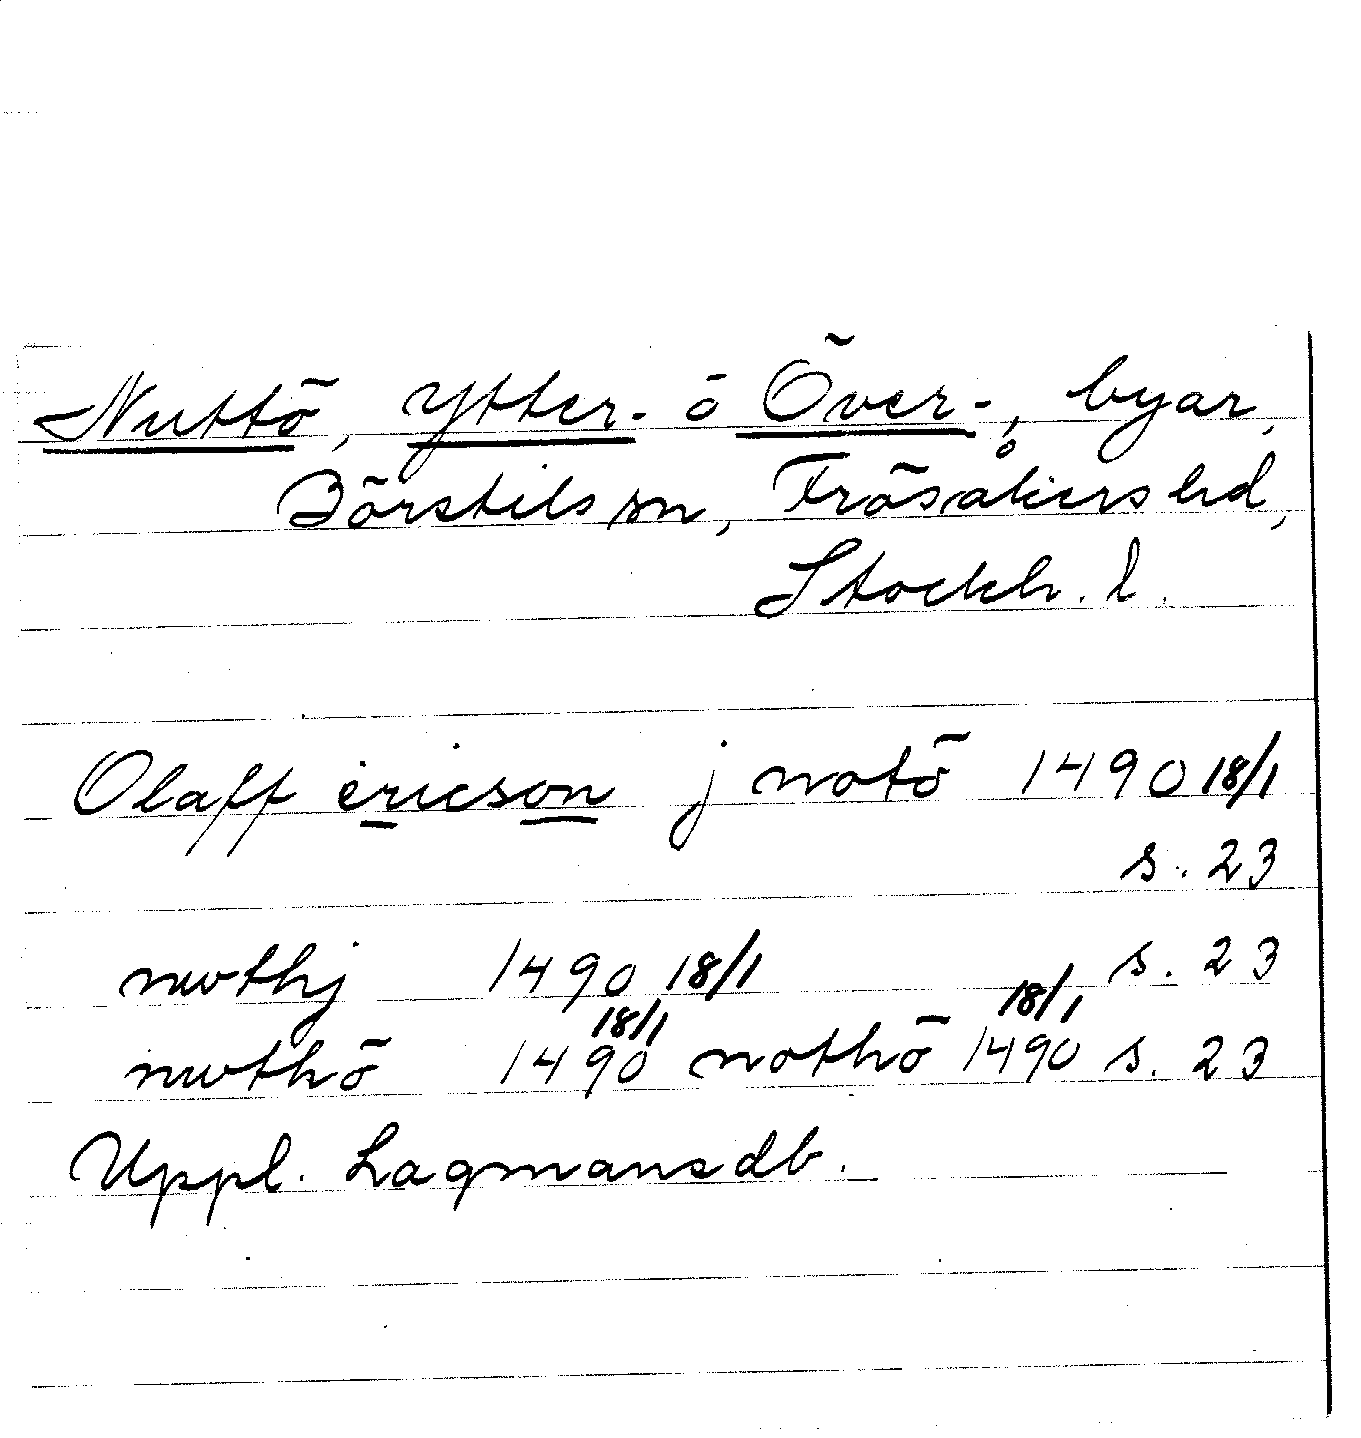 Nuttö, Ytter- o Över-, byar,
Börstils sn, Frösåkers hd,
Stockh. l.
Olaff ericson j notö 1490 18/1
s. 23
nwthj 1490 18/1 s. 23
nwthö 1490 18/1 nothö 1490 18/1 s. 23
Uppl. Lagmansdb.